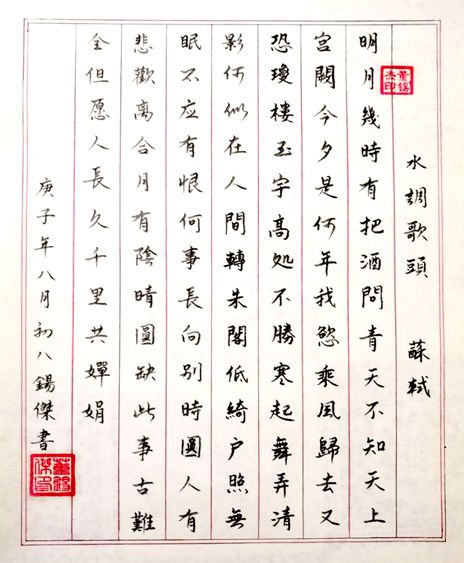 水調歌頭 蘇軾
明月幾時有把酒問青天不知天上
宮闕今夕是何年我慾乘風歸去又
恐瓊樓玉宇高処不勝寒起舞弄清
影何似在人間轉朱閣低綺户照無
眠不应有恨何事長向别時圓人有
悲歡离合月有陰晴圓缺此事古難
全但愿人長久千里共嬋娟
庚子年八月初八錫傑書